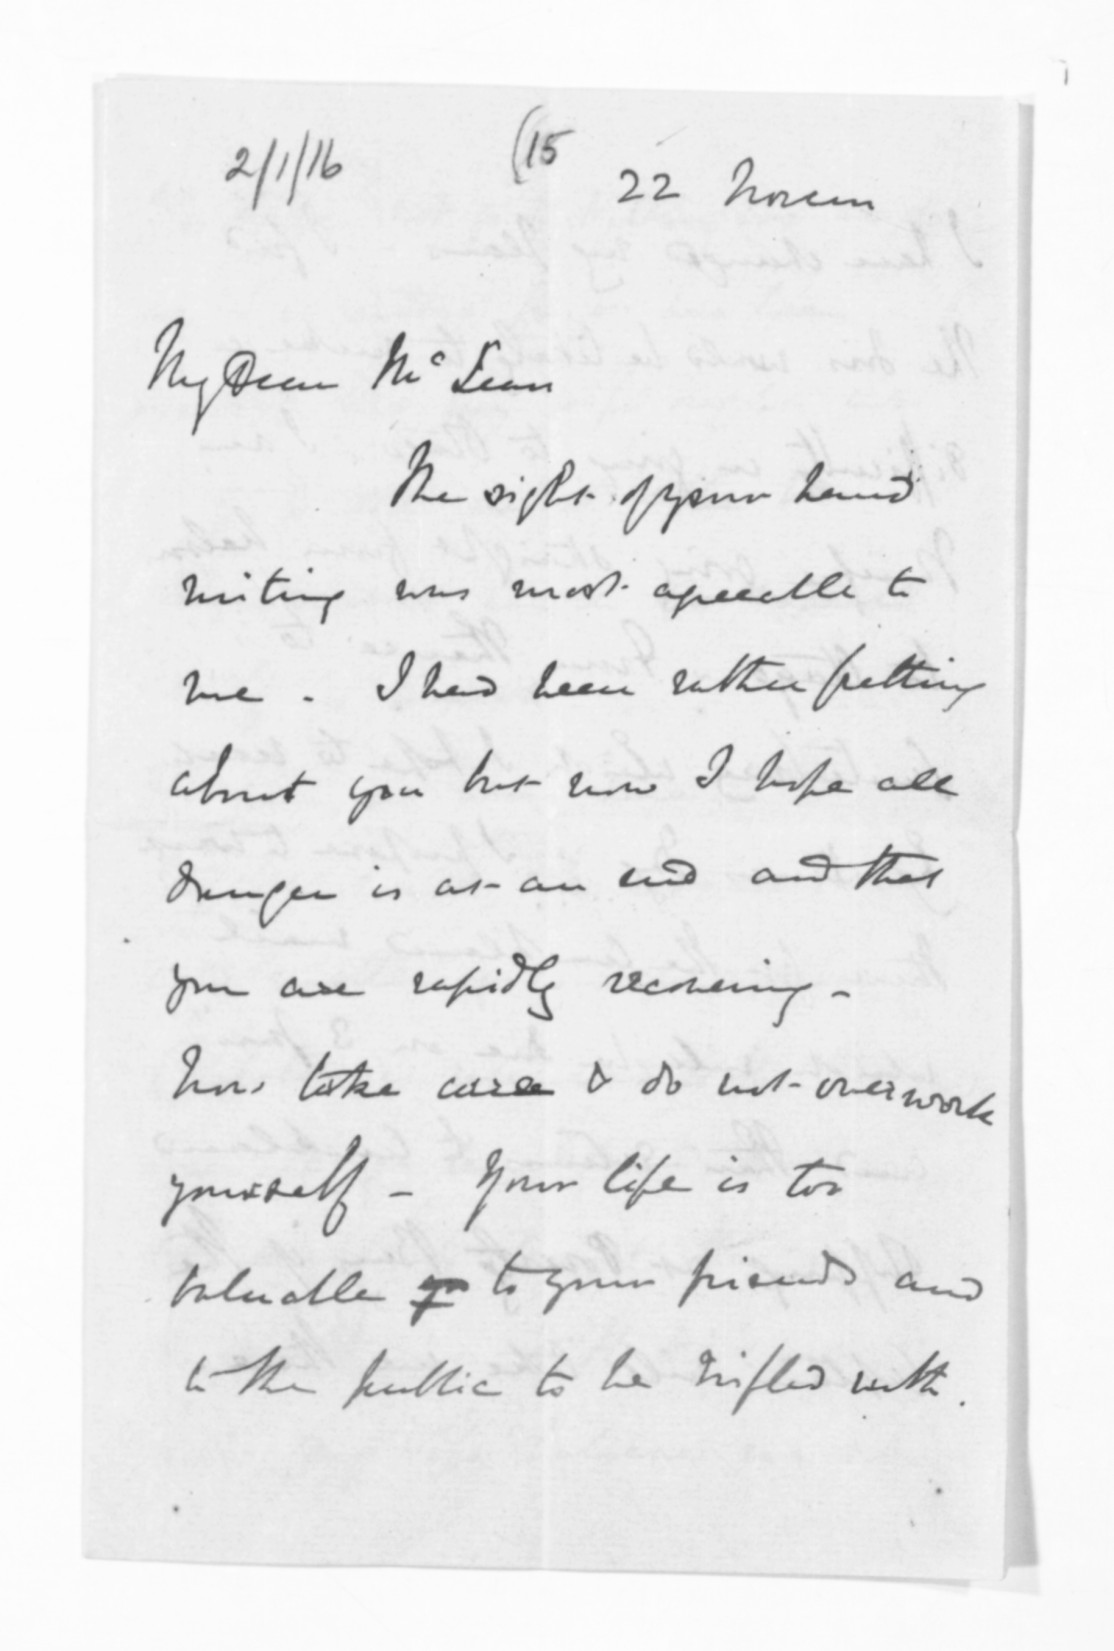 2/1/16 (15
22 Novem
My Dear McLean
The sight of your hand
writing was most agreeable to
me. I had been rather fretting
about you but now I hope all
danger is at an end and that
you are rapidly recovering -
Now take care & do not overwork
yourself - Your life is too
valuable to your friends and
to the public to be trifled with.